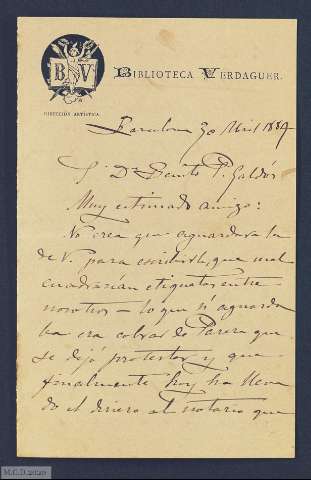 B V
BIBLIOTECA VERDAGUER.
DIRECCIÓN ARTÍSTICA
Barcelona 30 Abril 1889
S. Dn Benito P. Galdós
Muy estimado amigo:
No crea que aguardara la
de V. para escribirle, que mal
cuadrarian etiquetas entre
nosotros — lo que si aguarda
ba era cobrar de Parera que
se dejó protestar y que
finalmente hoy ha lleva
do el dinero al notario que
M.C.D. 2020